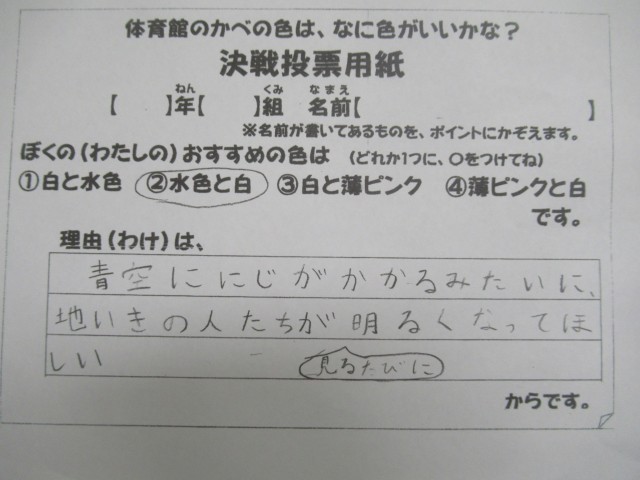 体育館のかべの色は、なに色がいいかな？
決戦投票用紙
【　　】年【　　】組　名前【　　　　　　　　】
ねん　くみ　なまえ
※名前が書いてあるものを、ポイントにかぞえます。
ぼくの（わたしの）おすすめの色は　（どれか1つに、○をつけてね）
①白と水色　②水色と白　③白と薄ピンク　④薄ピンクと白
です。
理由（わけ）は、
青空ににじがかかるみたいに、
地いきの人たちが明るくなってほ
しい
見るたびに
からです。